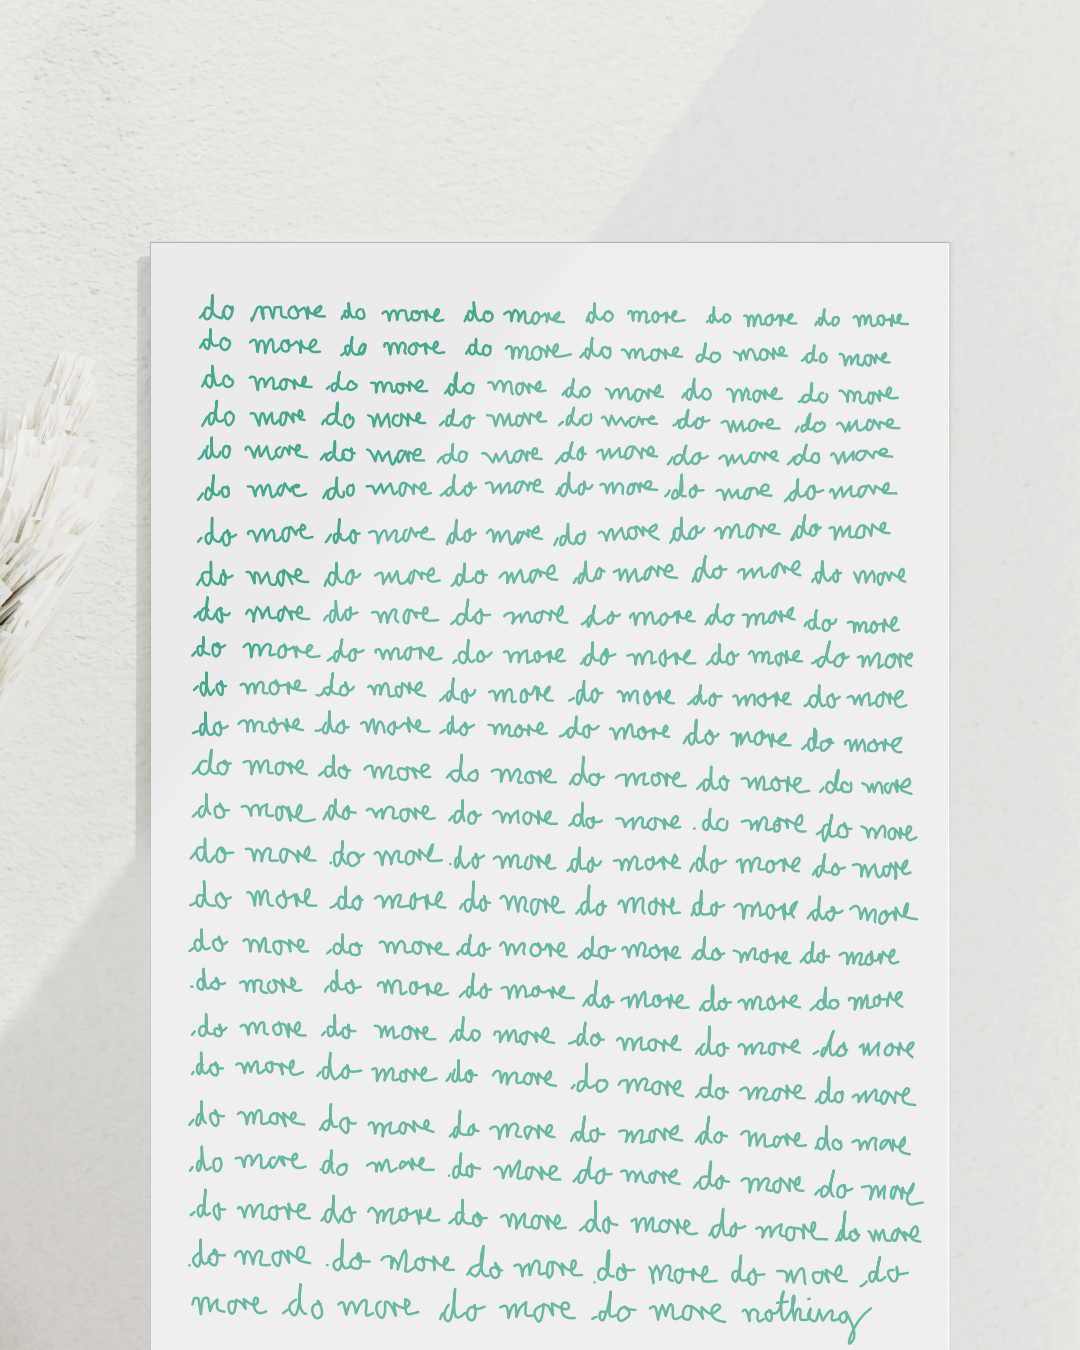 do more do more do more do more do more do more
do more do more do more do more do more do more
do more do more do more do more do more do more
do more do more do more do more do more do more
do more do more do more do more do more do more
do more do more do more do more do more do more
do more do more do more do more do more do more
do more do more do more do more do more do more
do more do more do more do more do more do more
do more do more do more do more do more do more
do more do more do more do more do more do more
do more do more do more do more do more do more
do more do more do more do more do more do more
do more do more do more do more do more do more
do more do more do more do more do more do more
do more do more do more do more do more do more
do more do more do more do more do more do more
do more do more do more do more do more do more
do more do more do more do more do more do more
do more do more do more do more do more do more
do more do more do more do more do more do more
do more do more do more do more do more do more
do more do more do more do more do more do more
do more do more do more do more do more do
more do more do more do more nothing